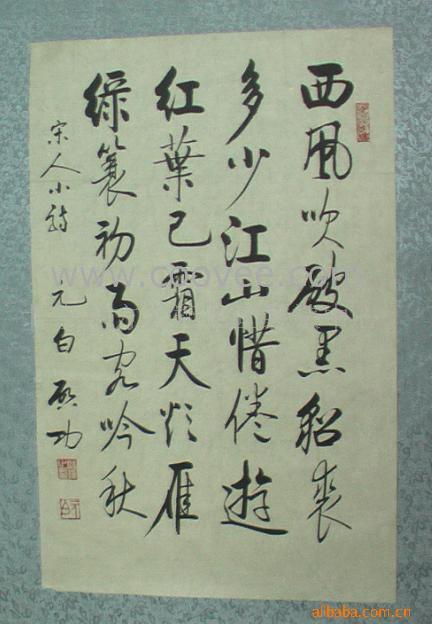 西風吹破黑貂裘
多少江山惜倦遊
紅葉已霜天欲雁
綠蓑初雨客吟秋
宋人小詩 元白啟功
www.coovee.com
alibaba.com.cn